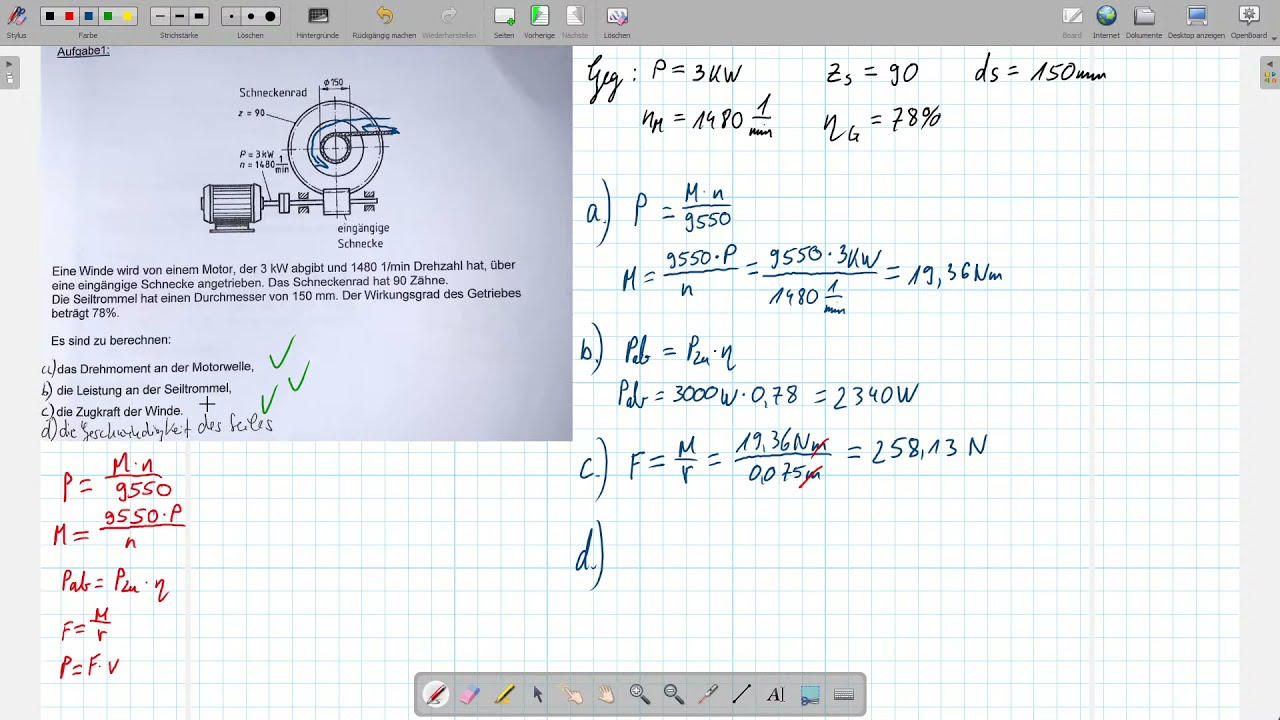 Stylus
Farbe
Strichstärke
Löschen
Hintergründe
Rückgängig machen
Wiederherstellen
Seiten
Vorherige
Nächste
Löschen
Board
Internet
Dokumente
Desktop anzeigen
OpenBoard
Aufgabe1:
ϕ150
Schneckenrad
z = 90
P = 3 kW
n = 1480 1/min
eingängige
Schnecke
Eine Winde wird von einem Motor, der 3 kW abgibt und 1480 1/min Drehzahl hat, über
eine eingängige Schnecke angetrieben. Das Schneckenrad hat 90 Zähne.
Die Seiltrommel hat einen Durchmesser von 150 mm. Der Wirkungsgrad des Getriebes
beträgt 78%.
Es sind zu berechnen:
a) das Drehmoment an der Motorwelle,
b) die Leistung an der Seiltrommel,
c) die Zugkraft der Winde.
d) die Geschwindigkeit des Seiles
P = M·n/9550
M = 9550·P/n
Pab = Pzu · η
F = M/r
P = F·v
Geg: P = 3KW zs = 90 ds = 150mm
nM = 1480 1/min ηG = 78%
a.) P = M·n/9550
M = 9550·P/n = 9550·3KW/1480 1/min = 19,36Nm
b.) Pab = Pzu·η
Pab = 3000W·0,78 = 2340W
c.) F = M/r = 19,36Nm/0,075m = 258,13 N
d.)
AI